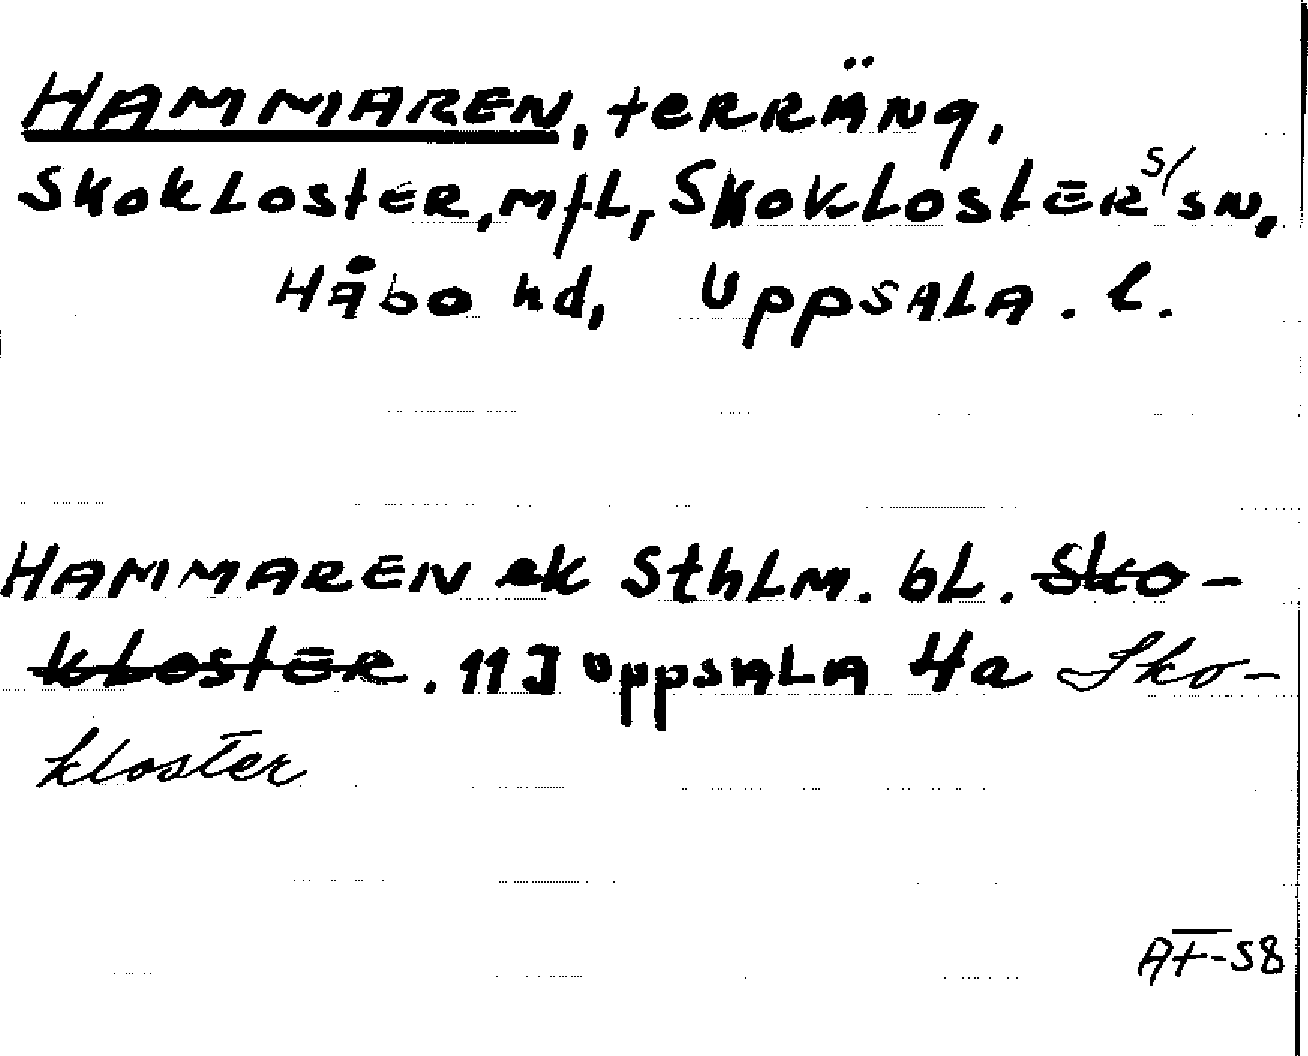 HAMMAREN, terräng,
Skokloster, mfl, Skoklosters sn,
Håbo hd, Uppsala. l.
HAMMAREN ek Sthlm. bl. Sko-
kloster. 11J Uppsala 4a Sko-
kloster
AT-58